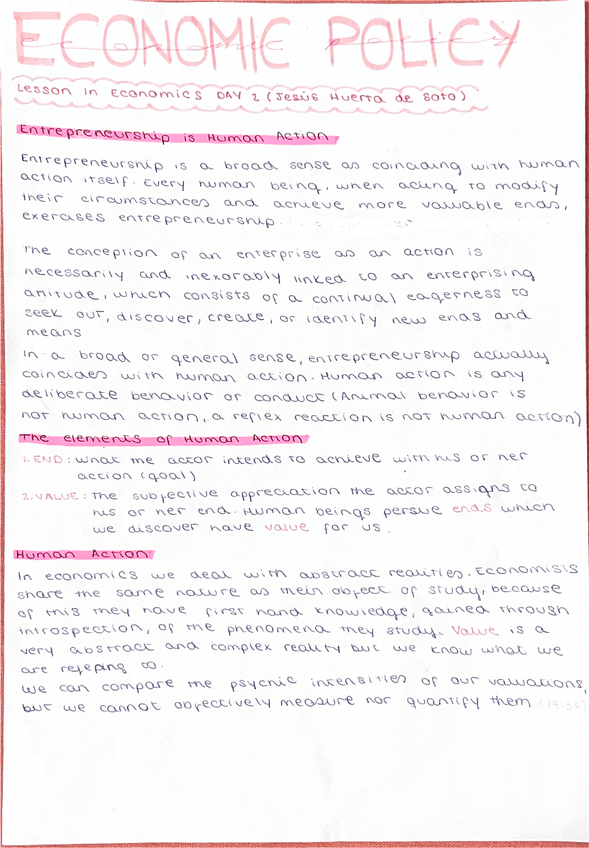 ECONOMIC POLICY
Lesson in Economics DAY 2 (Jesús Huerta de Soto)
Entrepreneurship is Human Action
Entrepreneurship is a broad sense as coinciding with human
action itself. Every human being, when acting to modify
their circumstances and achieve more valuable ends,
exercises entrepreneurship.
The conception of an enterprise as an action is
necessarily and inexorably linked to an enterprising
attitude, which consists of a continual eagerness to
seek out, discover, create, or identify new ends and
means
In a broad or general sense, entrepreneurship actually
coincides with human action. Human action is any
deliberate behavior or conduct (Animal behavior is
not human action, a reflex reaction is not human action)
The elements of Human Action
1. END: what the actor intends to achieve with his or her
action (goal)
2. VALUE: The subjective appreciation the actor assigns to
his or her end. Human beings persue ends which
we discover have value for us.
Human Action
In economics we deal with abstract realities. Economists
share the same nature as their object of study, because
of this they have first hand knowledge, gained through
introspection, of the phenomena they study. Value is a
very abstract and complex reality but we know what we
are refering to.
We can compare the psychic intensities of our valuations,
but we cannot objectively measure nor quantify them (29:38)